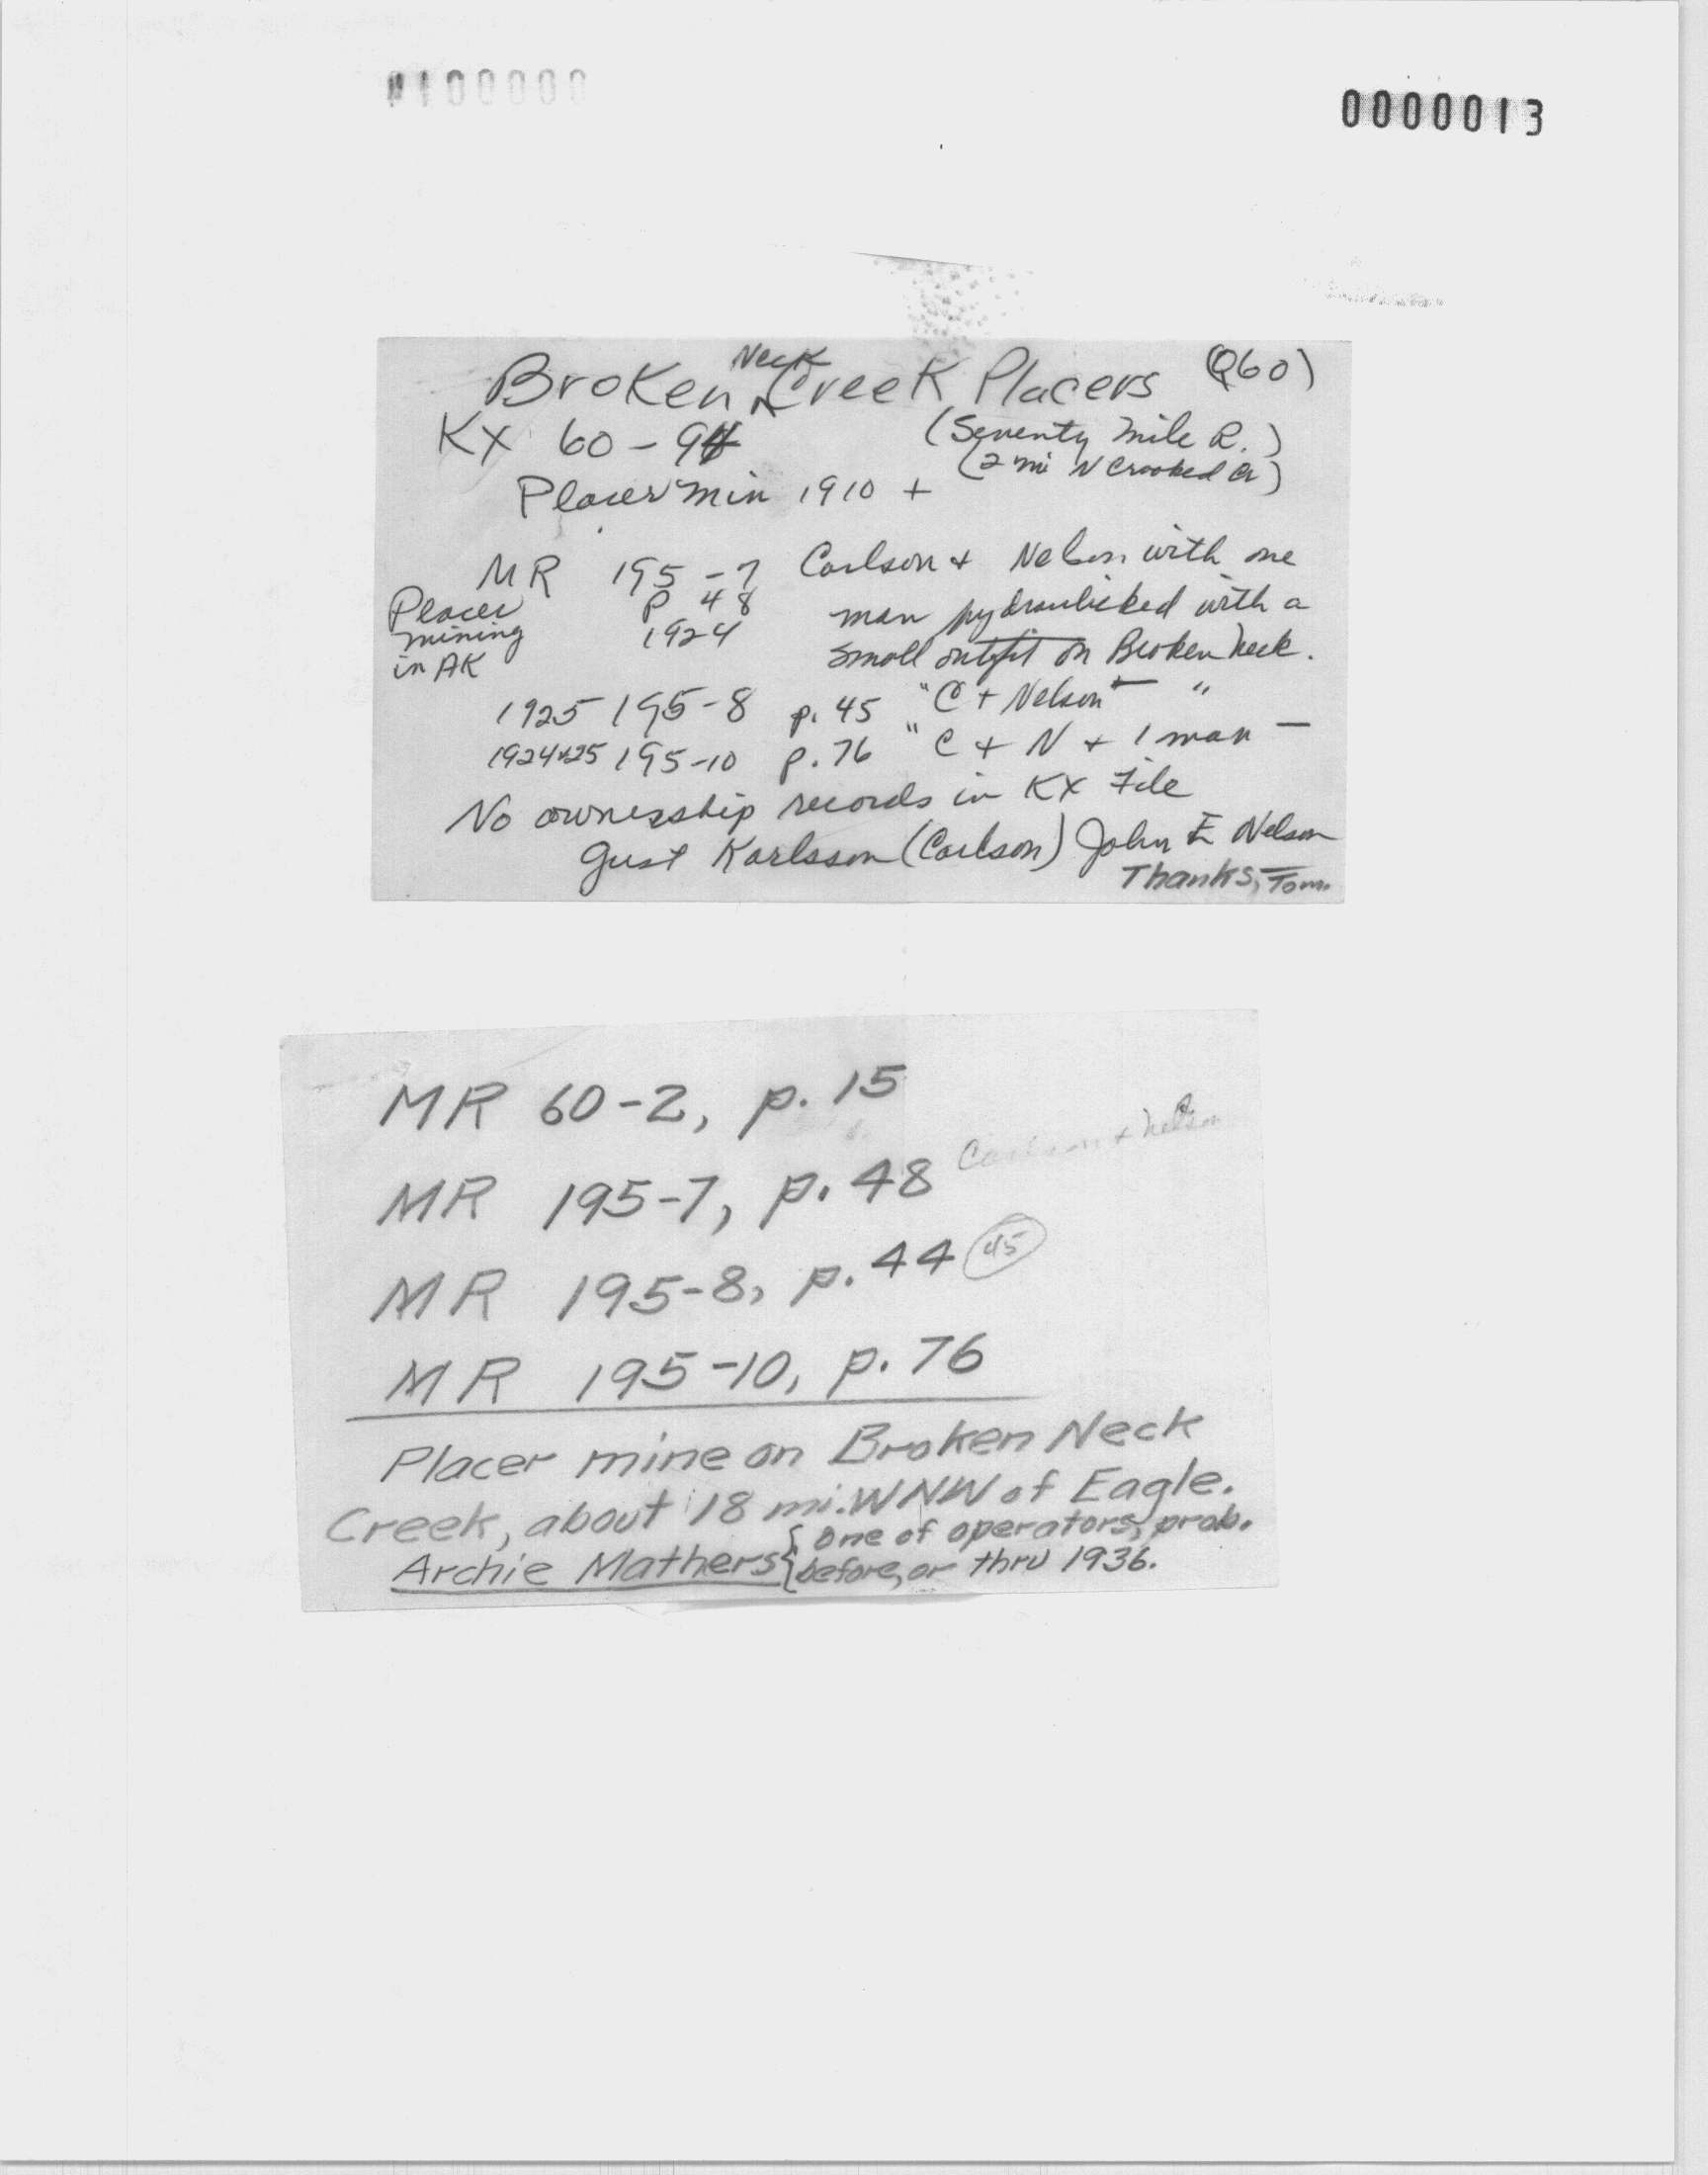 0000013
Broken Neck Creek Placers (Q60)
KX 60-94 (Seventy Mile R.)
(2 mi N Crooked Cr)
Placer min 1910 +
MR 195-7 Carlson + Nelson with one
Placer P 48 man hydraulicked with a
mining 1924 small outfit on Broken Neck.
in AK
1925 195-8 p. 45 "C + Nelson" — "
1924+25 195-10 p. 76 "C + N + 1 man —
No ownership records in KX File
Gust Karlsson (Carlson) John E Nelson
Thanks, Tom.
MR 60-2, p. 15
Carlson + Nelson
MR 195-7, p. 48
MR 195-8, p. 44 45
MR 195-10, p. 76
Placer mine on Broken Neck
Creek, about 18 mi. WNW of Eagle.
Archie Mathers { One of operators, prob.
before, or thru 1936.